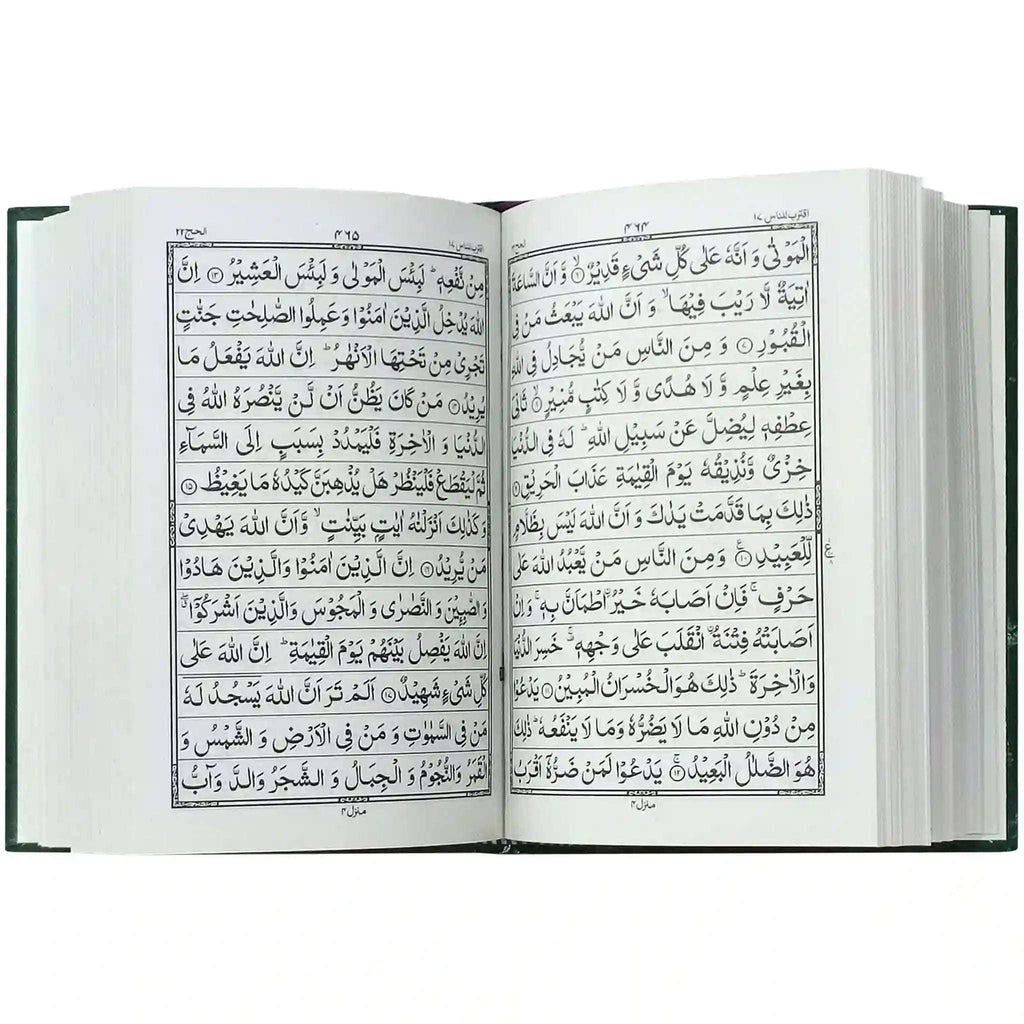 اقترب للناس ١٧
۴۶۴
الحج ٢٢
الْمَوْتٰى وَ اَنَّهٗ عَلٰى كُلِّ شَیْءٍ قَدِیْرٌ ۙ۝۶ وَّ اَنَّ السَّاعَةَ
اٰتِیَةٌ لَّا رَیْبَ فِیْهَا ۙ وَ اَنَّ اللّٰهَ یَبْعَثُ مَنْ فِی
الْقُبُوْرِ ۝۷ وَ مِنَ النَّاسِ مَنْ یُّجَادِلُ فِی اللّٰهِ
بِغَیْرِ عِلْمٍ وَّ لَا هُدًى وَّ لَا كِتٰبٍ مُّنِیْرٍ ۙ۝۸ ثَانِیَ
عِطْفِهٖ لِیُضِلَّ عَنْ سَبِیْلِ اللّٰهِ ؕ لَهٗ فِی الدُّنْیَا
خِزْیٌ وَّ نُذِیْقُهٗ یَوْمَ الْقِیٰمَةِ عَذَابَ الْحَرِیْقِ ۝۹
ذٰلِكَ بِمَا قَدَّمَتْ یَدٰكَ وَ اَنَّ اللّٰهَ لَیْسَ بِظَلَّامٍ
لِّلْعَبِیْدِ ۝۱۰ وَ مِنَ النَّاسِ مَنْ یَّعْبُدُ اللّٰهَ عَلٰى
حَرْفٍ ۚ فَاِنْ اَصَابَهٗ خَیْرُ ۨاطْمَاَنَّ بِهٖ ۚ وَ اِنْ
اَصَابَتْهُ فِتْنَةُ ۨانْقَلَبَ عَلٰى وَجْهِهٖ ۚ خَسِرَ الدُّنْیَا
وَ الْاٰخِرَةَ ؕ ذٰلِكَ هُوَ الْخُسْرَانُ الْمُبِیْنُ ۝۱۱ یَدْعُوْا
مِنْ دُوْنِ اللّٰهِ مَا لَا یَضُرُّهٗ وَ مَا لَا یَنْفَعُهٗ ؕ ذٰلِكَ
هُوَ الضَّلٰلُ الْبَعِیْدُ ۚ۝۱۲ یَدْعُوْا لَمَنْ ضَرُّهٗۤ اَقْرَبُ
منزل ۴
اقترب للناس ١٧
۴۶۵
الحج ٢٢
مِنْ نَّفْعِهٖ ؕ لَبِئْسَ الْمَوْلٰى وَ لَبِئْسَ الْعَشِیْرُ ۝۱۳ اِنَّ
اللّٰهَ یُدْخِلُ الَّذِیْنَ اٰمَنُوْا وَ عَمِلُوا الصّٰلِحٰتِ جَنّٰتٍ
تَجْرِیْ مِنْ تَحْتِهَا الْاَنْهٰرُ ؕ اِنَّ اللّٰهَ یَفْعَلُ مَا
یُرِیْدُ ۝۱۴ مَنْ كَانَ یَظُنُّ اَنْ لَّنْ یَّنْصُرَهُ اللّٰهُ فِی
الدُّنْیَا وَ الْاٰخِرَةِ فَلْیَمْدُدْ بِسَبَبٍ اِلَى السَّمَآءِ
ثُمَّ لْیَقْطَعْ فَلْیَنْظُرْ هَلْ یُذْهِبَنَّ كَیْدُهٗ مَا یَغِیْظُ ۝۱۵
وَ كَذٰلِكَ اَنْزَلْنٰهُ اٰیٰتٍۭ بَیِّنٰتٍ ۙ وَّ اَنَّ اللّٰهَ یَهْدِیْ
مَنْ یُّرِیْدُ ۝۱۶ اِنَّ الَّذِیْنَ اٰمَنُوْا وَ الَّذِیْنَ هَادُوْا
وَ الصّٰبِـِٕیْنَ وَ النَّصٰرٰى وَ الْمَجُوْسَ وَ الَّذِیْنَ اَشْرَكُوْۤا ۖۗ
اِنَّ اللّٰهَ یَفْصِلُ بَیْنَهُمْ یَوْمَ الْقِیٰمَةِ ؕ اِنَّ اللّٰهَ عَلٰى
كُلِّ شَیْءٍ شَهِیْدٌ ۝۱۷ اَلَمْ تَرَ اَنَّ اللّٰهَ یَسْجُدُ لَهٗ
مَنْ فِی السَّمٰوٰتِ وَ مَنْ فِی الْاَرْضِ وَ الشَّمْسُ وَ
الْقَمَرُ وَ النُّجُوْمُ وَ الْجِبَالُ وَ الشَّجَرُ وَ الدَّوَآبُّ
منزل ۴